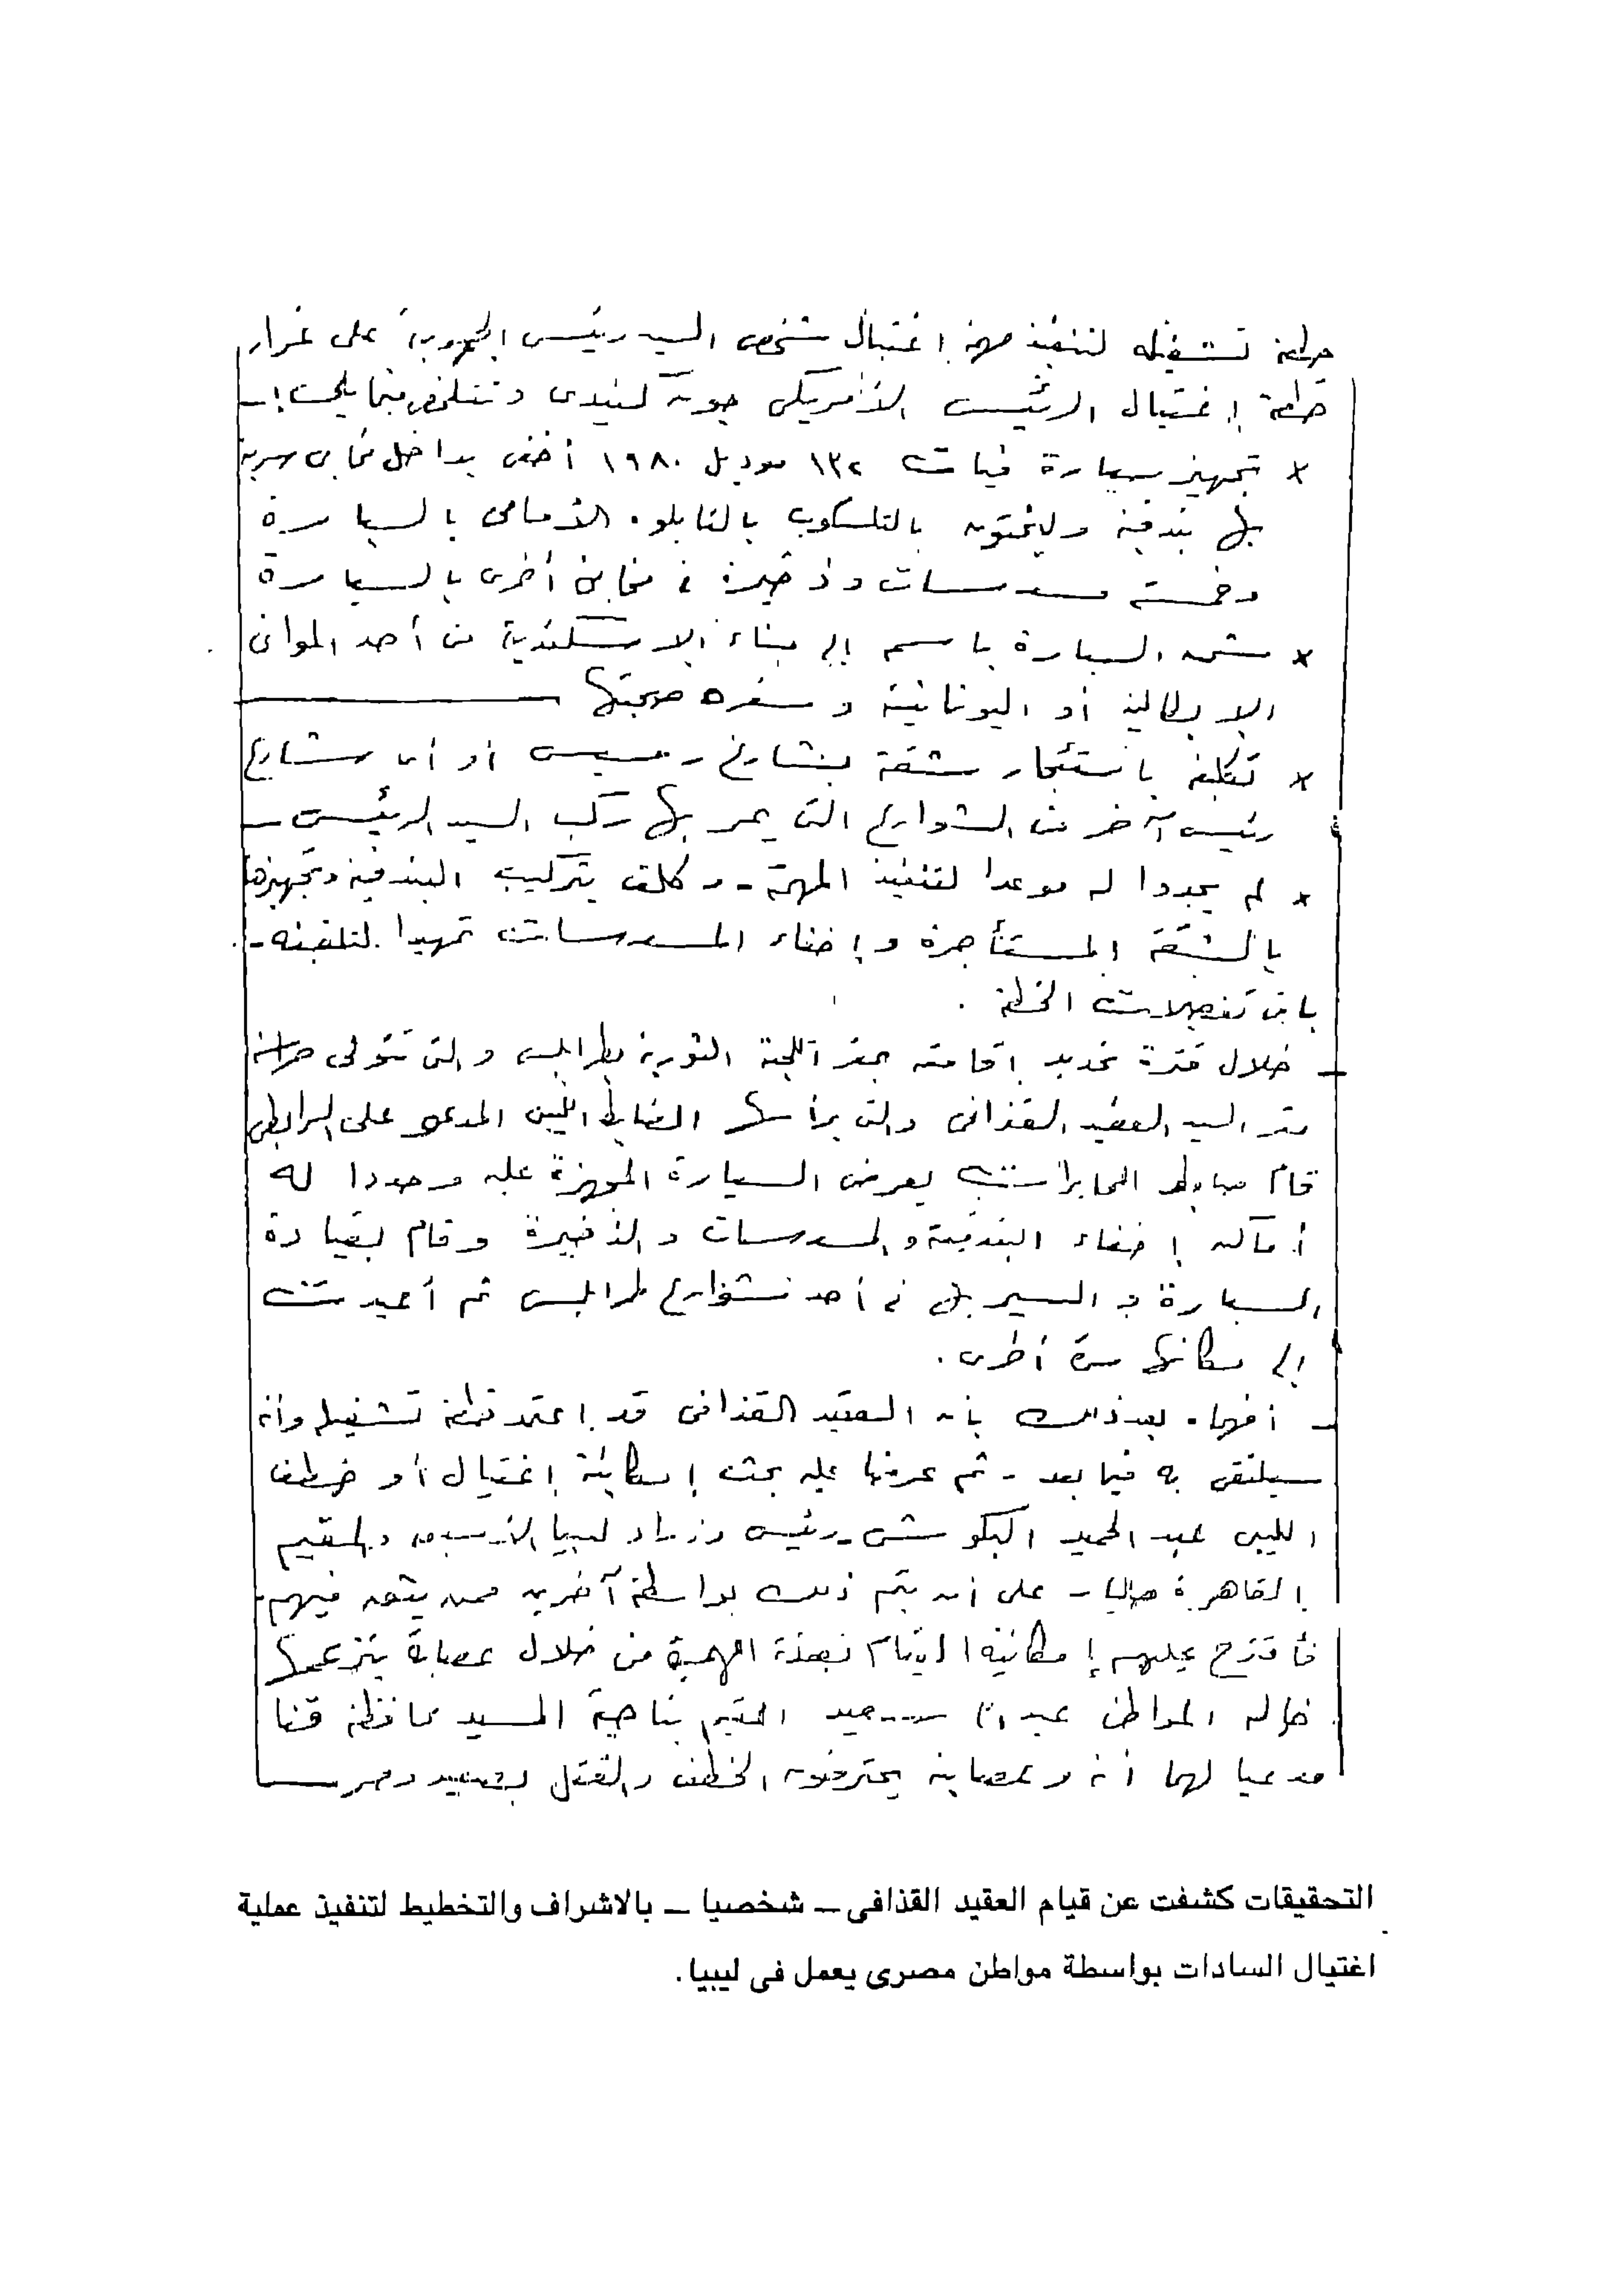 خطة تشغيله لتنفيذ مهمة اغتيال شخص السيد رئيس الجمهورية على غرار
خطة إغتيال الرئيس الأمريكى جون كنيدى وتتلخص فيما يلى :ـ
× تجهيز سيارة فيات ١٣٢ موديل ١٩٨٠ أخفى بداخل مخابئ سرية
بها بندقية بالتلسكوب بالتابلوه الأمامى بالسيارة
وخمسة مسدسات وذخيرة فى مخابئ أخرى بالسيارة
× شحن السيارة باسمه إلى ميناء الاسكندرية من أحد الموانى
الايطالية أو اليونانية وسفره صحبتها
× تكليفه باستئجار شقة بشارع رمسيس أو أى شارع
رئيسى آخر من الشوارع التى يمر بها ركب السيد الرئيس ـ
× لم يحددا له موعدا لتنفيذ المهمة ـ وكلف بتركيب البندقية وتجهيزها
بالشقة المستأجرة وإخفاء المسدسات تمهيدا لتلقينه ـ
باقى تفصيلات الخطة .
ـ خلال فترة تحديد اقامته بمقر اللجنة الثورية بطرابلس والتى تتولى حراسة
مقر السيد العقيد القذافى والتى يرأسها الضابط الليبى المدعو على
قام ضابط المخابرات بعرض السيارة المجهزة عليه وحددا له
أماكن إخفاء البندقية والمسدسات والذخيرة وقام بقيادة
السيارة والسير بها فى أحد شوارع طرابلس ثم أعيدت
إلى مكانها مرة أخرى .
ـ أفهماه بعد ذلك بأن العقيد القذافى قد اعتمد خطة تشغيله وأنه
سيلتقى به فيما بعد ـ ثم عرضا عليه بحث إمكانية إغتيال أو خطف
الليبى عبد الحميد البكوش ـ رئيس وزراء ليبيا الأسبق والمقيم
بالقاهرة حاليا ـ على أن يتم ذلك بواسطة آخرين ممن يثق فيهم ـ
فأقترح عليهم إمكانية القيام بهذه المهمة من خلال عصابة يتزعمها
خاله المواطن سعيد المقيم بناحية السيد محافظة قنا
مدعيا لهما أنه وعصابته يحترفون الخطف والقتل بصعيد مصر
التحقيقات كشفت عن قيام العقيد القذافى ـ شخصيا ـ بالاشراف والتخطيط لتنفيذ عملية
اغتيال السادات بواسطة مواطن مصرى يعمل فى ليبيا.